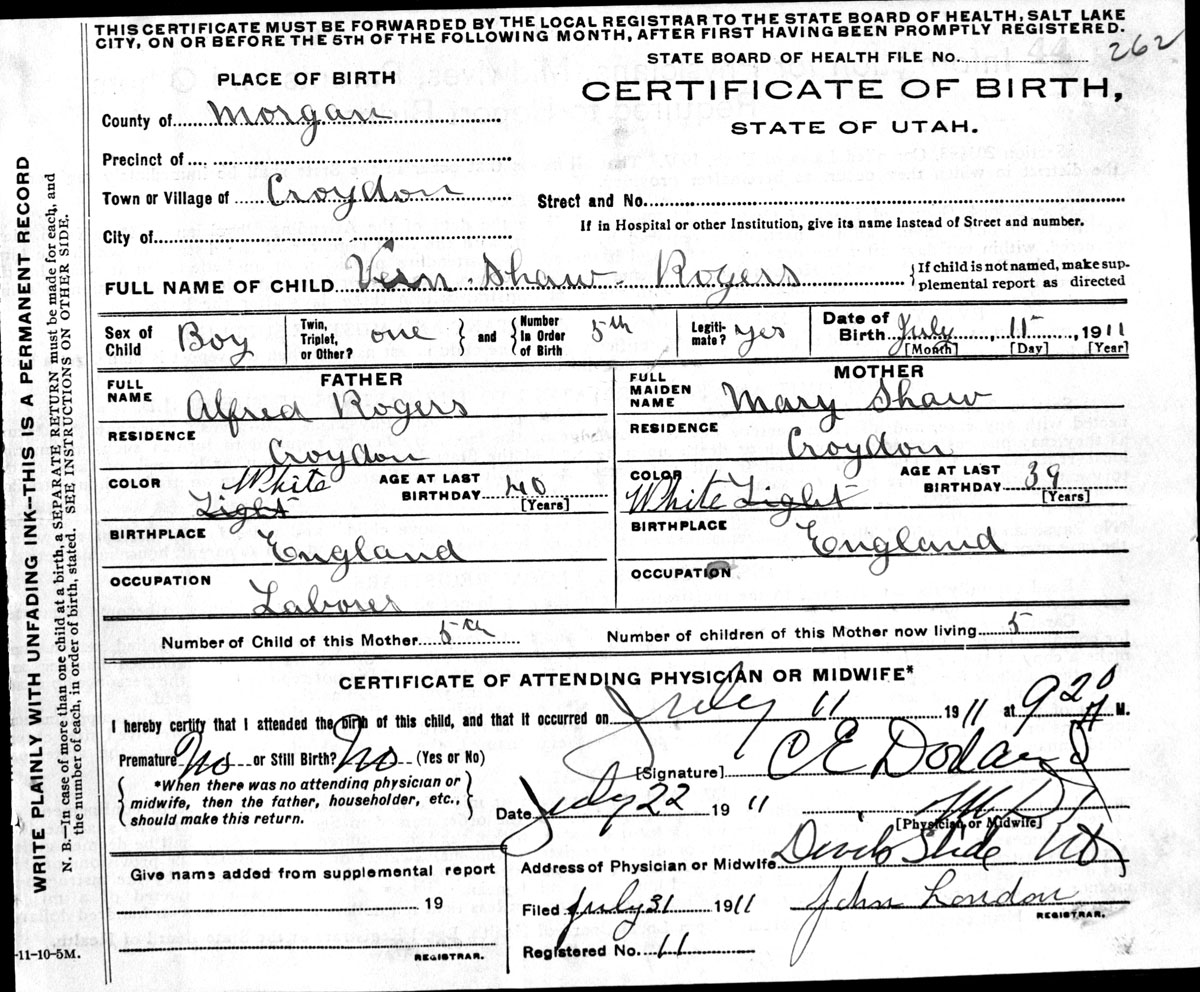 THIS CERTIFICATE MUST BE FORWARDED BY THE LOCAL REGISTRAR TO THE STATE BOARD OF HEALTH, SALT LAKE
CITY, ON OR BEFORE THE 5TH OF THE FOLLOWING MONTH, AFTER FIRST HAVING BEEN PROMPTLY REGISTERED.
STATE BOARD OF HEALTH FILE No. 262
PLACE OF BIRTH
CERTIFICATE OF BIRTH,
STATE OF UTAH.
County of Morgan
Precinct of
Town or Village of Croydon
Street and No.
If in Hospital or other Institution, give its name instead of Street and number.
City of
FULL NAME OF CHILD Vern Shaw Rogers
If child is not named, make sup-
plemental report as directed
Sex of Child Boy
Twin, Triplet, or Other? one
and Number In Order of Birth 5th
Legiti-mate? yes
Date of Birth July 11 1911
[Month] [Day] [Year]
FATHER
FULL NAME Alfred Rogers
RESIDENCE Croydon
COLOR White Light
AGE AT LAST BIRTHDAY 40
[Years]
BIRTHPLACE England
OCCUPATION Laborer
MOTHER
FULL MAIDEN NAME Mary Shaw
RESIDENCE Croydon
COLOR White Light
AGE AT LAST BIRTHDAY 39
[Years]
BIRTHPLACE England
OCCUPATION
Number of Child of this Mother 5th
Number of children of this Mother now living 5
CERTIFICATE OF ATTENDING PHYSICIAN OR MIDWIFE*
I hereby certify that I attended the birth of this child, and that it occurred on July 11 1911 at 9 20 M.
Premature No or Still Birth? No (Yes or No)
*When there was no attending physician or
midwife, then the father, householder, etc.,
should make this return.
[Signature] C E
Date July 22 19 11
M D
[Physician or Midwife]
Give name added from supplemental report
19
REGISTRAR.
Address of Physician or Midwife Devils Slide
Filed July 31 1911 John London
REGISTRAR.
Registered No. 11
-11-10-5M.
WRITE PLAINLY WITH UNFADING INK—THIS IS A PERMANENT RECORD
N. B.—In case of more than one child at a birth, a SEPARATE RETURN must be made for each, and
the number of each, in order of birth, stated. SEE INSTRUCTIONS ON OTHER SIDE.